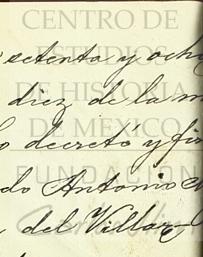 CENTRO DE
ESTUDIOS
DE HISTORIA
DE MEXICO
FUNDACION
setenta y ocho
diez de la m
lo decretó y fir
do Antonio
del Villar